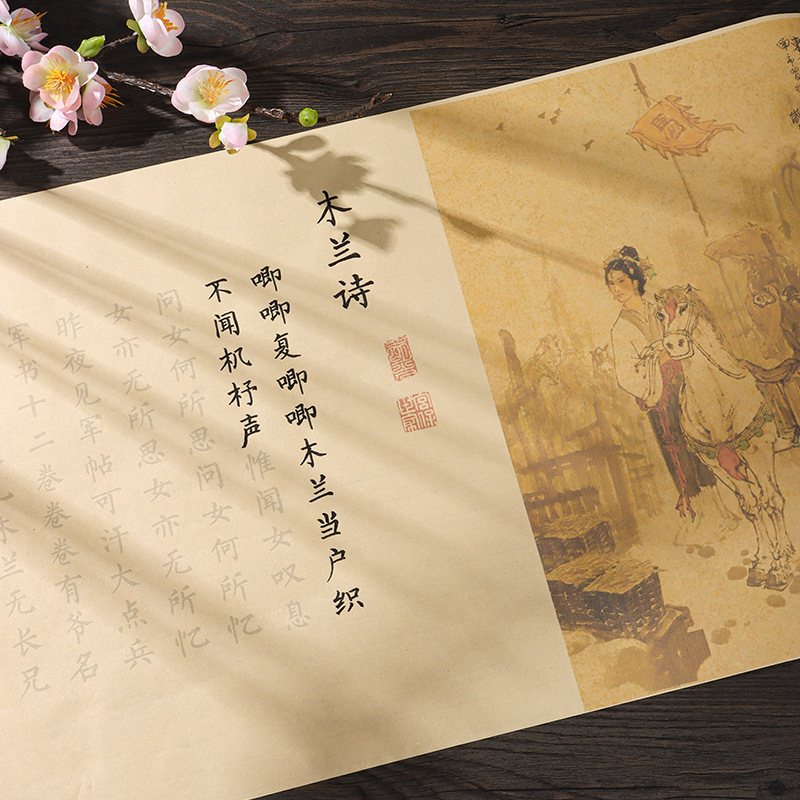 木兰诗
唧唧复唧唧木兰当户织
不闻机杼声惟闻女叹息
问女何所思问女何所忆
女亦无所思女亦无所忆
昨夜见军帖可汗大点兵
军书十二卷卷卷有爷名
木兰无长兄